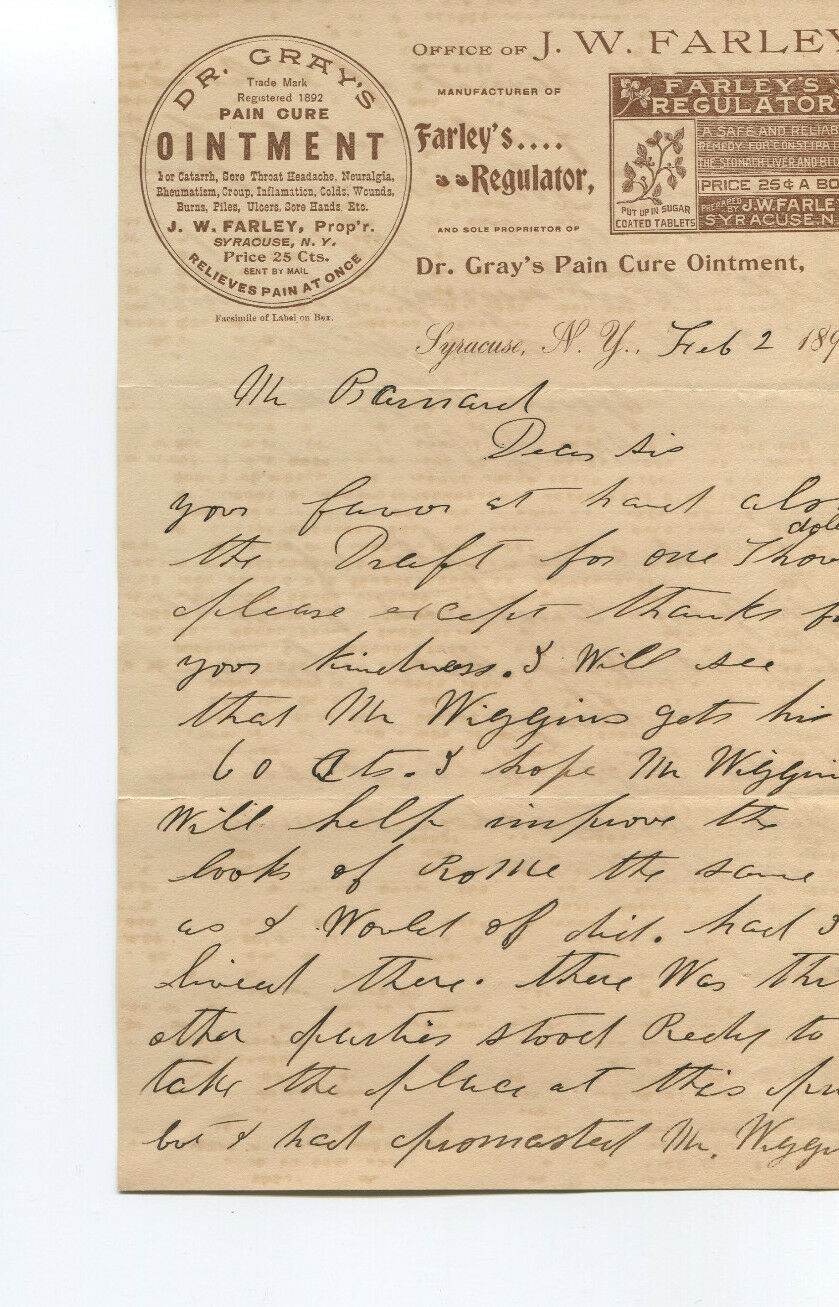 DR. GRAY'S
Trade Mark
Registered 1892
PAIN CURE
OINTMENT
For Catarrh, Sore Throat Headache, Neuralgia,
Rheumatism, Croup, Inflamation, Colds, Wounds,
Burns, Piles, Ulcers, Sore Hands, Etc.
J. W. FARLEY, Prop'r.
SYRACUSE, N. Y.
Price 25 Cts.
SENT BY MAIL
RELIEVES PAIN AT ONCE
Facsimile of Label on Box.
OFFICE OF J. W. FARLEY
MANUFACTURER OF
Farley's....
Regulator,
AND SOLE PROPRIETOR OF
Dr. Gray's Pain Cure Ointment,
FARLEY'S
REGULATOR
A SAFE AND RELIA
REMEDY FOR CONSTIPAT
THE STOMACH LIVER AND
PRICE 25¢ A BO
PUT UP IN SUGAR
COATED TABLETS
PREPARED BY J.W. FARLE
SYRACUSE N.
Syracuse, N. Y., Feb 2 189
Mr Barnard
Dear Sir
your favor at hand also
the Draft for one Thou
please except thanks fo
your kindness. I Will see
that Mr Wiggins gets his
60 Cts. I hope Mr Wiggin
Will help improve the
looks of RoMe the same
as I Would of did. had I
lived there. there Was thr
other parties stood Redy to
take the place at this pri
but I had promasted Mr. Wiggi